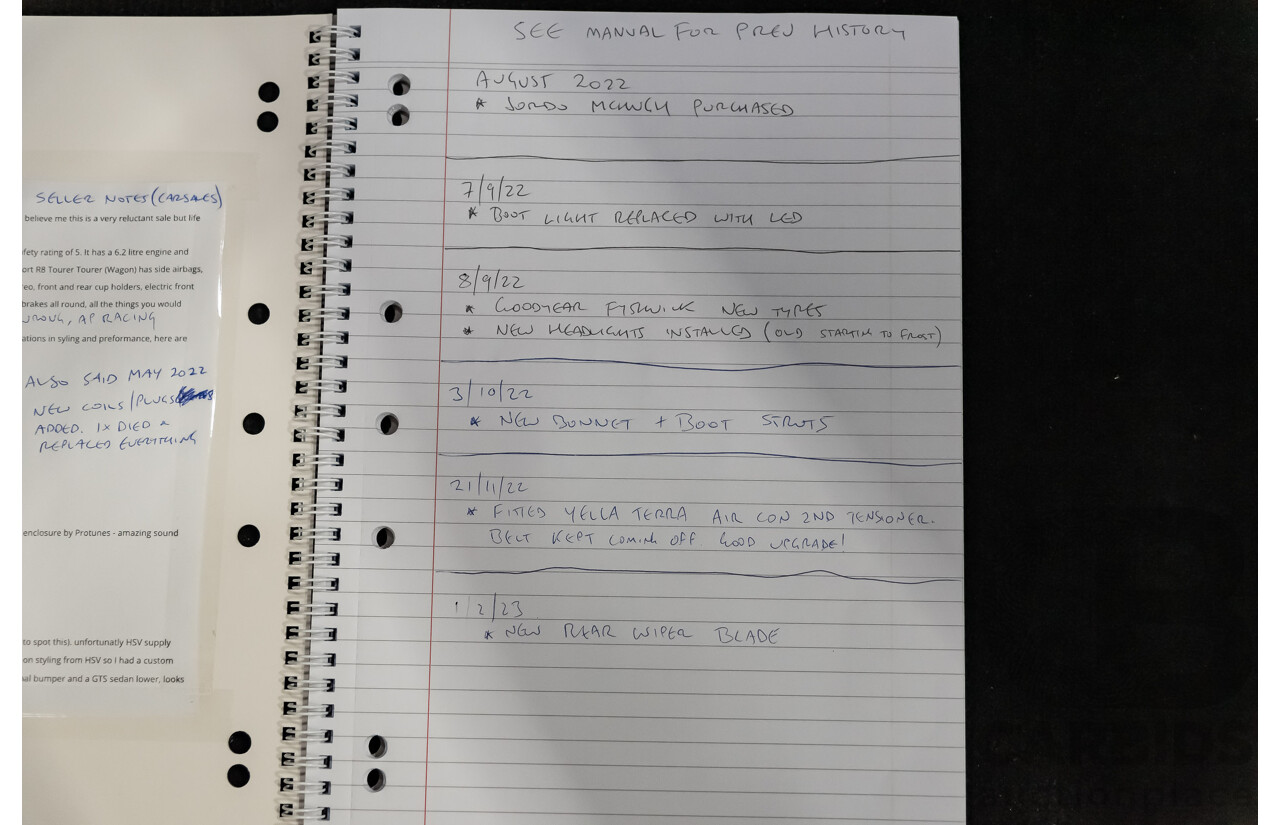 SELLER NOTES (CARSALES)
believe me this is a very reluctant sale but life
fety rating of 5. It has a 6.2 litre engine and
ort R8 Tourer Tourer (Wagon) has side airbags,
eo, front and rear cup holders, electric front
brakes all round, all the things you would
WRONG, AP RACING
ations in syling and preformance, here are
ALSO SAID MAY 2022
NEW COILS/PLUGS
ADDED. 1X DIED &
REPLACED EVERYTHING
enclosure by Protunes - amazing sound
to spot this). unfortunatly HSV supply
on styling from HSV so I had a custom
al bumper and a GTS sedan lower, looks
SEE MANUAL FOR PREV HISTORY
AUGUST 2022
* JORDO MCHUGH PURCHASED
7/9/22
* BOOT LIGHT REPLACED WITH LED
8/9/22
* GOODYEAR NEW TYRES
* NEW HEADLIGHTS INSTALLED (OLD STARTING TO FROST)
3/10/22
* NEW BONNET + BOOT STRUTS
21/11/22
* FITTED YELLA TERRA AIR CON 2ND TENSIONER.
BELT KEPT COMING OFF. GOOD UPGRADE!
1/2/23
* NEW REAR WIPER BLADE
CARBIDS